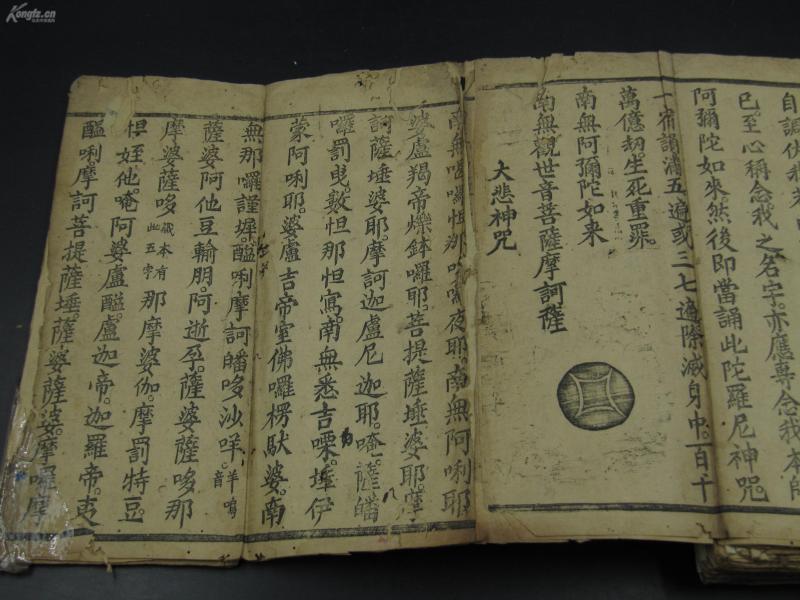 自調伏我若
已。至心稱念。我之名字。亦應專念我本師
阿彌陀如來。然後即當誦此陀羅尼神咒。
一宿誦滿五遍或三七遍除滅身中。百千
萬億劫生死重罪。
南無阿彌陀如来
南無觀世音菩薩摩訶薩
大悲神咒
南無喝囉怛那哆囉夜耶。南無阿唎耶
婆盧羯帝爍鉢囉耶。菩提薩埵婆耶。摩
訶薩埵婆耶。摩訶迦盧尼迦耶。唵。薩皤
囉罰曳。數怛那怛寫。南無悉吉嘌。埵伊
蒙阿唎耶。婆盧吉帝室佛囉楞馱婆。南
無那囉謹墀。醯唎摩訶皤哆沙咩。羊鳴音
薩婆阿他豆輸朋。阿逝孕。薩婆薩哆那
摩婆薩哆藏本有此五字那摩婆伽。摩罰特豆。
怛姪他唵。阿婆盧醯。盧迦帝。迦羅帝。夷
醯唎。摩訶菩提薩埵。薩婆薩婆。摩囉摩
Kongfz.cn